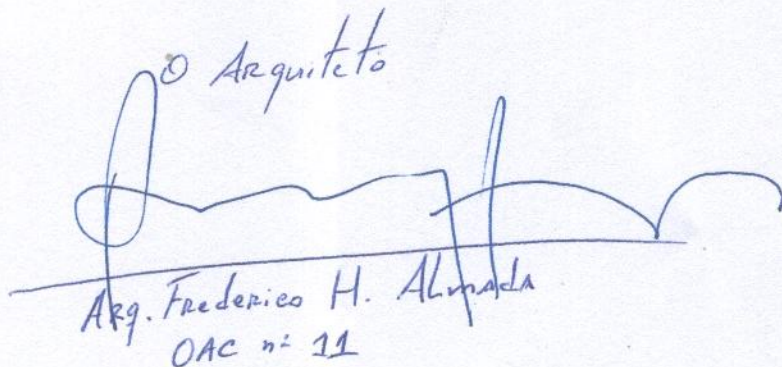 O Arquiteto
Arq. Frederico H. Almada
OAC nº 11